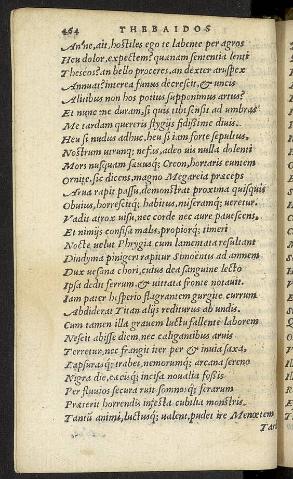 464 THEBAIDOS
An'ne, ait, hostiles ego te labente per agros
Heu dolor, expectem? quanam sententia lenti
Theseos? an bello proceres, an dexter aruspex
Annuat? interea funus decrescit, & uncis
Alitibus non hos potius supponimus artus?
Et nunc me duram, si quis tibi sensit ad umbras
Me tardam quereris stygijs fidissime diuis.
Heu si nudus adhuc, heu si iam forte sepultus,
Nostrum utrumq; nefas, adeo uis nulla dolenti
Mors nusquam sæuusq; Creon, hortaris euntem
Ornite, sic dicens, magno Megareia præceps
Arua rapit passu, demonstrat proxima quisquis
Obuius, horrescitq; habitus, miseramq; ueretur.
Vadit atrox uisu, nec corde nec aure pauescens,
Et nimijs confisa malis, propiorq; timeri
Nocte uelut Phrygia cum lamentata resultant
Dindyma pinigeri rapitur Simoentis ad amnem
Dux uesana chori, cuius dea sanguine lecto
Ipsa dedit ferrum, & uittata fronte notauit.
Iam pater hesperio flagrantem gurgite currum
Abdiderat Titan alijs rediturus ab undis.
Cum tamen illa grauem luctu fallente laborem
Nescit abisse diem, nec caligantibus aruis
Terretur, nec frangit iter per & inuia saxa,
Lapsurasq; trabes, nemorumq; arcana sereno
Nigra die, cæcisq; incisa noualia fossis
Per fluuios secura uadi, somnosq; ferarum
Præterit horrendis infesta cubilia monstris.
Tantũ animi, luctusq; ualent, pudet ire Menœtem
Tar